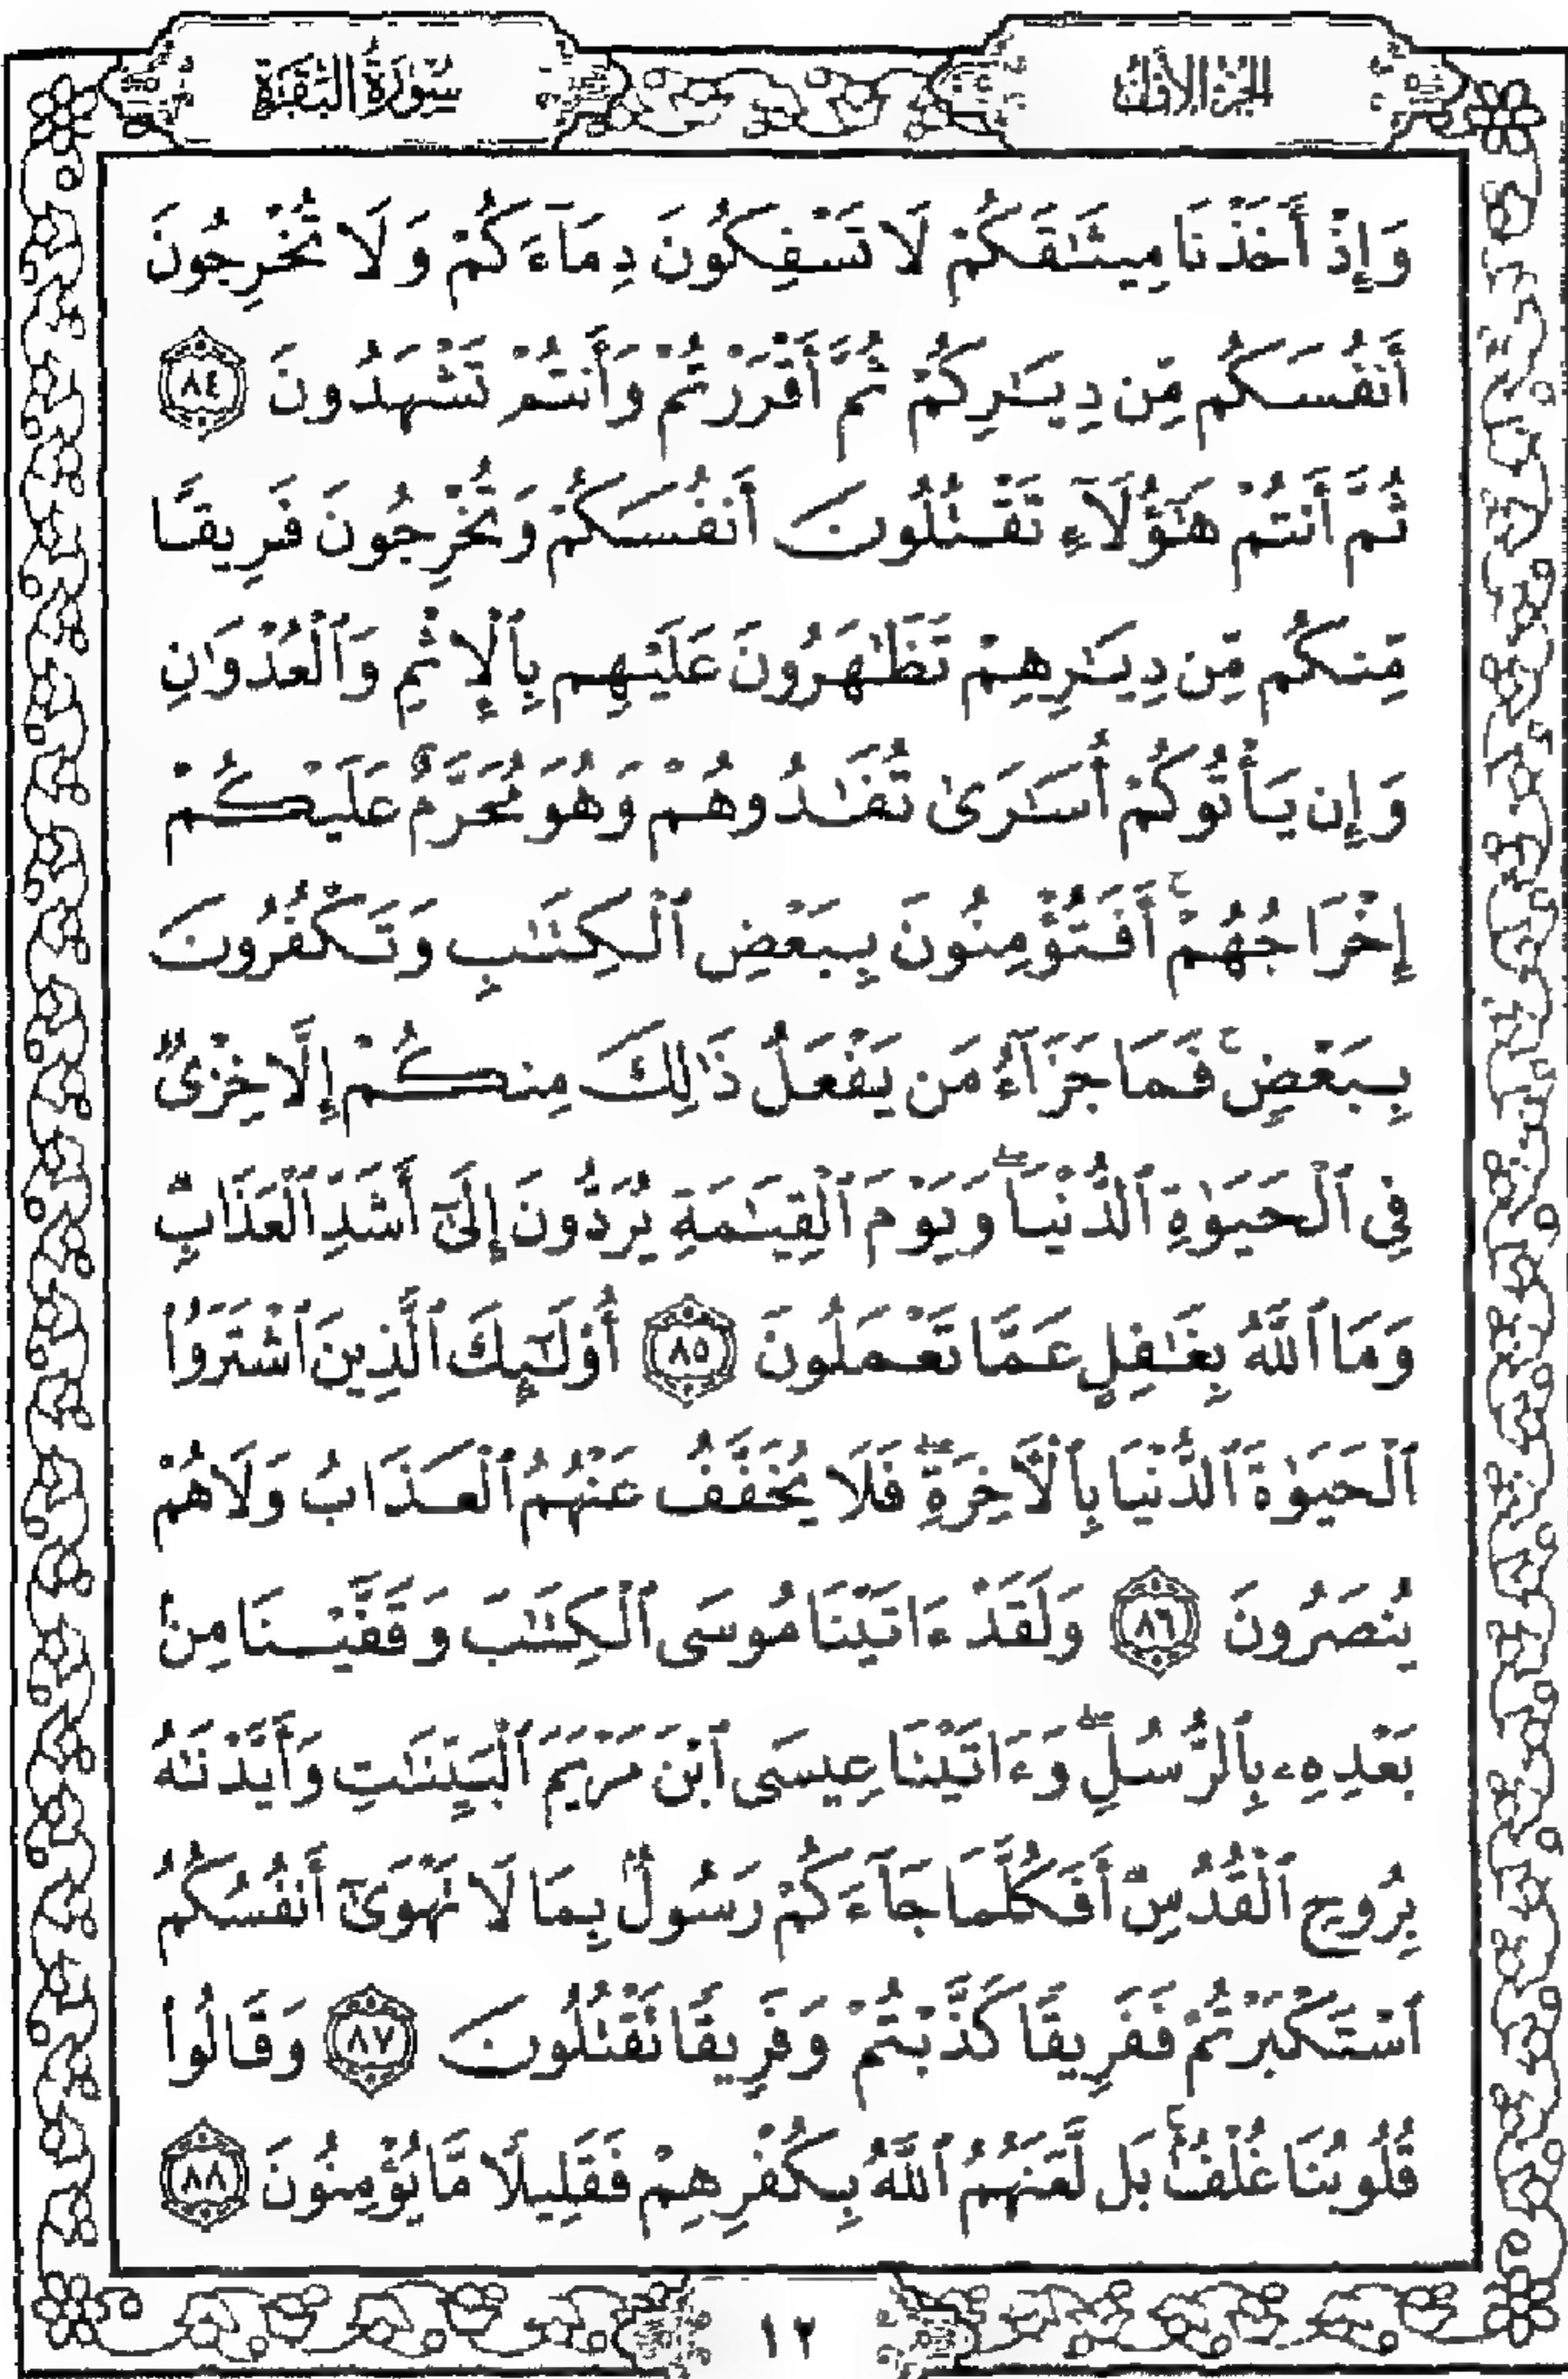 الجزء الأول
سورة البقرة
وَإِذْ أَخَذْنَا مِيثَٰقَكُمْ لَا تَسْفِكُونَ دِمَآءَكُمْ وَلَا تُخْرِجُونَ
أَنفُسَكُم مِّن دِيَٰرِكُمْ ثُمَّ أَقْرَرْتُمْ وَأَنتُمْ تَشْهَدُونَ ٨٤
ثُمَّ أَنتُمْ هَٰٓؤُلَآءِ تَقْتُلُونَ أَنفُسَكُمْ وَتُخْرِجُونَ فَرِيقًا
مِّنكُم مِّن دِيَٰرِهِمْ تَظَٰهَرُونَ عَلَيْهِم بِٱلْإِثْمِ وَٱلْعُدْوَٰنِ
وَإِن يَأْتُوكُمْ أُسَٰرَىٰ تُفَٰدُوهُمْ وَهُوَ مُحَرَّمٌ عَلَيْكُمْ
إِخْرَاجُهُمْ ۚ أَفَتُؤْمِنُونَ بِبَعْضِ ٱلْكِتَٰبِ وَتَكْفُرُونَ
بِبَعْضٍ ۚ فَمَا جَزَآءُ مَن يَفْعَلُ ذَٰلِكَ مِنكُمْ إِلَّا خِزْىٌ
فِى ٱلْحَيَوٰةِ ٱلدُّنْيَا ۖ وَيَوْمَ ٱلْقِيَٰمَةِ يُرَدُّونَ إِلَىٰٓ أَشَدِّ ٱلْعَذَابِ ۗ
وَمَا ٱللَّهُ بِغَٰفِلٍ عَمَّا تَعْمَلُونَ ٨٥ أُو۟لَٰٓئِكَ ٱلَّذِينَ ٱشْتَرَوُا۟
ٱلْحَيَوٰةَ ٱلدُّنْيَا بِٱلْءَاخِرَةِ ۖ فَلَا يُخَفَّفُ عَنْهُمُ ٱلْعَذَابُ وَلَا هُمْ
يُنصَرُونَ ٨٦ وَلَقَدْ ءَاتَيْنَا مُوسَى ٱلْكِتَٰبَ وَقَفَّيْنَا مِنۢ
بَعْدِهِۦ بِٱلرُّسُلِ ۖ وَءَاتَيْنَا عِيسَى ٱبْنَ مَرْيَمَ ٱلْبَيِّنَٰتِ وَأَيَّدْنَٰهُ
بِرُوحِ ٱلْقُدُسِ ۗ أَفَكُلَّمَا جَآءَكُمْ رَسُولٌۢ بِمَا لَا تَهْوَىٰٓ أَنفُسُكُمُ
ٱسْتَكْبَرْتُمْ فَفَرِيقًا كَذَّبْتُمْ وَفَرِيقًا تَقْتُلُونَ ٨٧ وَقَالُوا۟
قُلُوبُنَا غُلْفٌۢ ۚ بَل لَّعَنَهُمُ ٱللَّهُ بِكُفْرِهِمْ فَقَلِيلًا مَّا يُؤْمِنُونَ ٨٨
١٢